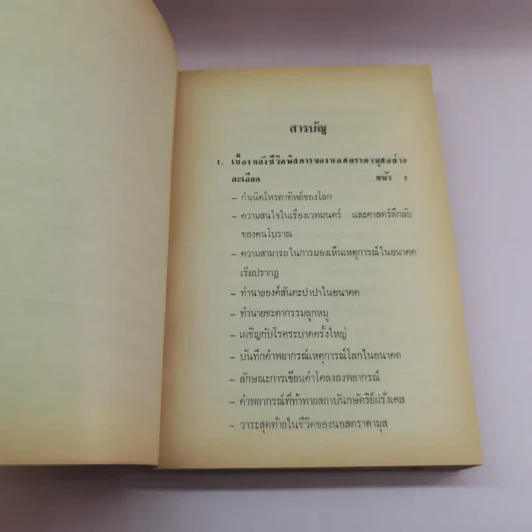 สารบัญ
1. เบื้องหลังชีวิตพิสดารของนอสตราดามุสอย่าง
ละเอียด หน้า 1
– กำเนิดโหราทิพย์ของโลก
– ความสนใจในเรื่องเวทมนตร์ และศาสตร์ลึกลับ
ของคนโบราณ
– ความสามารถในการมองเห็นเหตุการณ์ในอนาคต
เริ่มปรากฏ
– ทำนายองค์สันตะปาปาในอนาคต
– ทำนายชะตากรรมลูกหมู
– เผชิญกับโรคระบาดครั้งใหญ่
– บันทึกคำพยากรณ์เหตุการณ์โลกในอนาคต
– ลักษณะการเขียนคำโคลงลงพยากรณ์
– คำพยากรณ์ที่ท้าทายสถาบันกษัตริย์ฝรั่งเศส
– วาระสุดท้ายในชีวิตของนอสตราดามุส